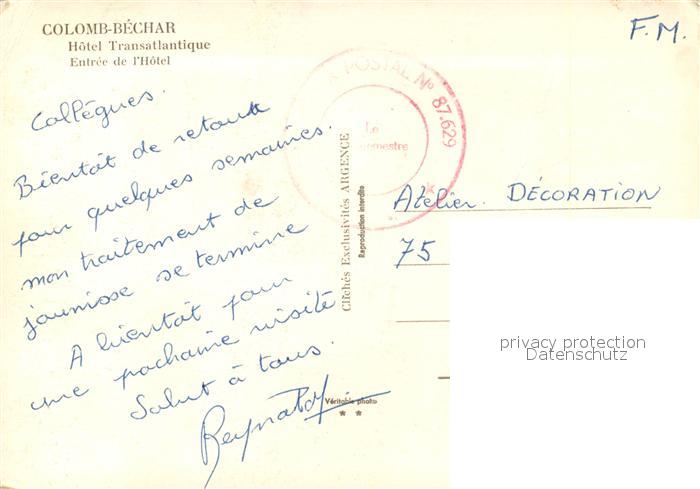 COLOMB-BÉCHAR
Hôtel Transatlantique
Entrée de l'Hôtel
F.M.
POSTAL N° 87.629
Le
Collègues.
Bientôt de retour
pour quelques semaines.
mon traitement de
jaunisse se termine
A bientôt pour
une prochaine visite
Salut à tous.
Clichés Exclusivités ARGENCE
Reproduction interdite
Véritable photo
Atelier DÉCORATION
75
privacy protection
Datenschutz